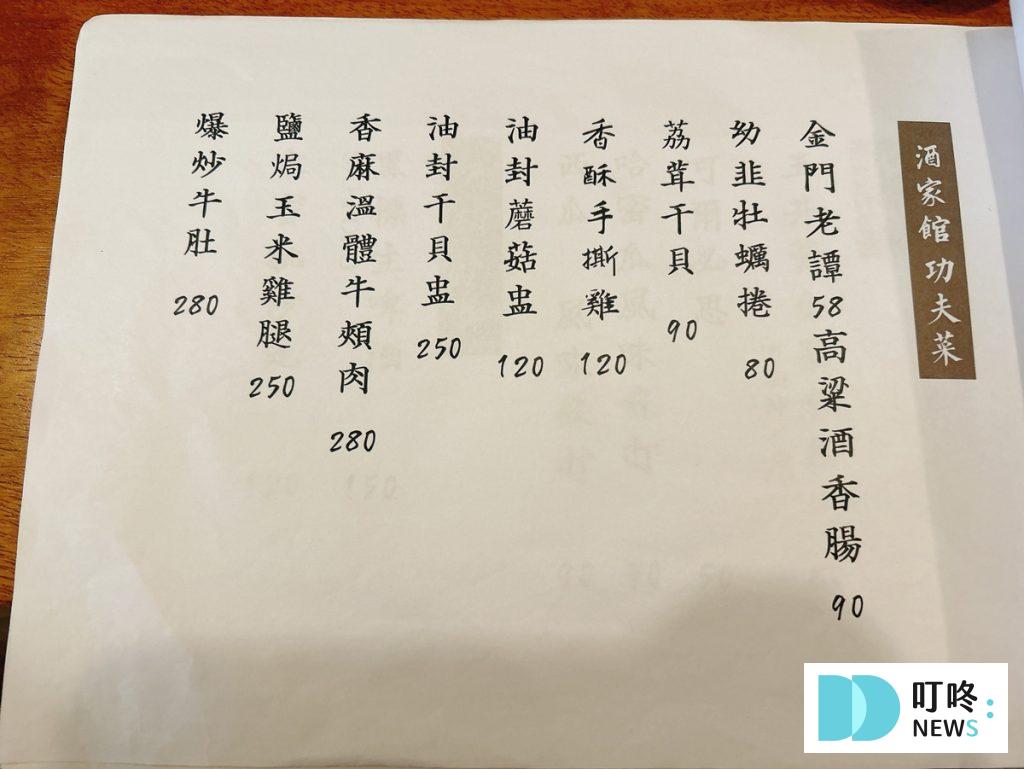 酒家館功夫菜
金門老譚58高粱酒香腸 90
幼韭牡蠣捲 80
荔茸干貝 90
香酥手撕雞 120
油封蘑菇盅 120
油封干貝盅 250
香麻溫體牛頰肉 280
鹽焗玉米雞腿 250
爆炒牛肚 280
叮咚
NEWS